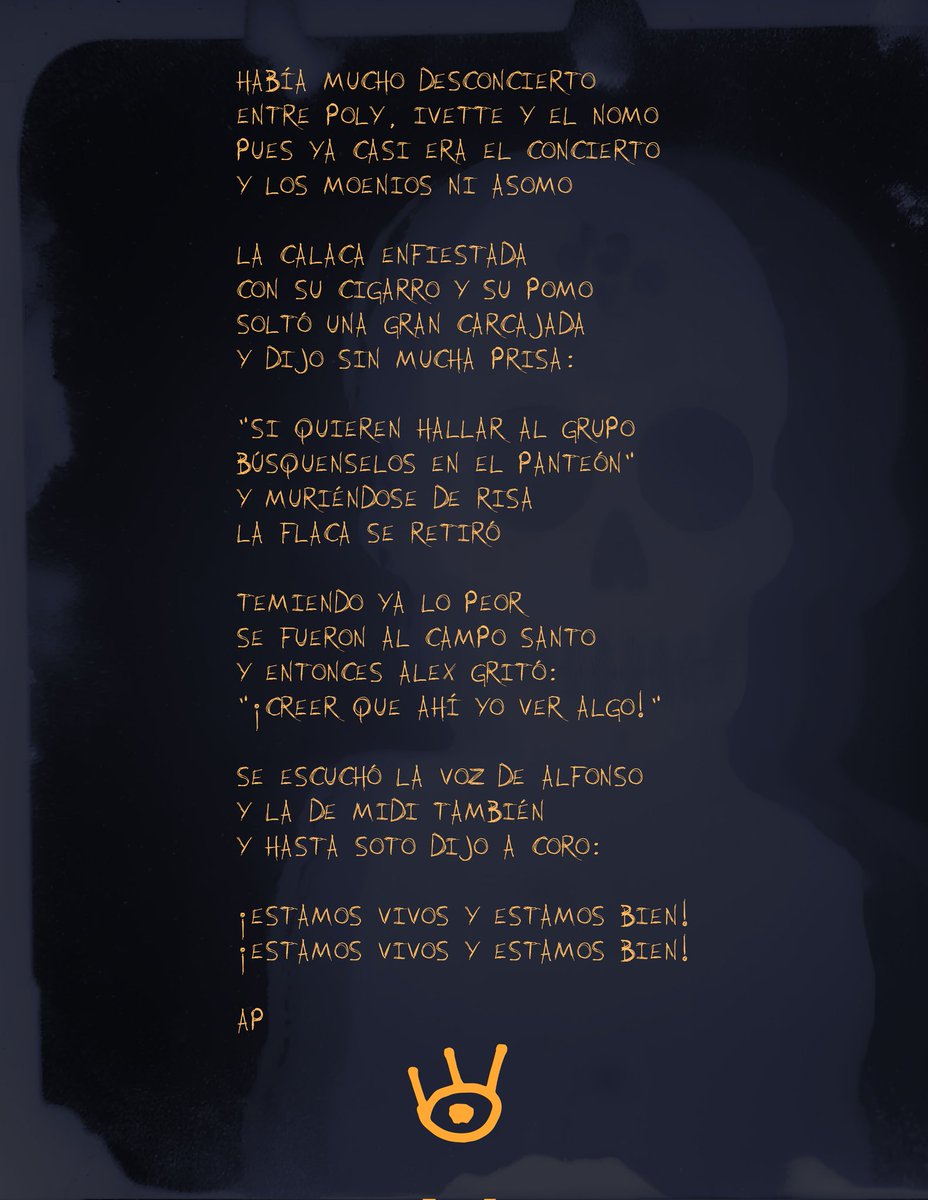 HABÍA MUCHO DESCONCIERTO
ENTRE POLY, IVETTE Y EL NOMO
PUES YA CASI ERA EL CONCIERTO
Y LOS MOENIOS NI ASOMO
LA CALACA ENFIESTADA
CON SU CIGARRO Y SU POMO
SOLTÓ UNA GRAN CARCAJADA
Y DIJO SIN MUCHA PRISA:
"SI QUIEREN HALLAR AL GRUPO
BÚSQUENSELOS EN EL PANTEÓN"
Y MURIÉNDOSE DE RISA
LA FLACA SE RETIRÓ
TEMIENDO YA LO PEOR
SE FUERON AL CAMPO SANTO
Y ENTONCES ALEX GRITÓ:
"¡CREER QUE AHÍ YO VER ALGO!"
SE ESCUCHÓ LA VOZ DE ALFONSO
Y LA DE MIDI TAMBIÉN
Y HASTA SOTO DIJO A CORO:
¡ESTAMOS VIVOS Y ESTAMOS BIEN!
¡ESTAMOS VIVOS Y ESTAMOS BIEN!
AP